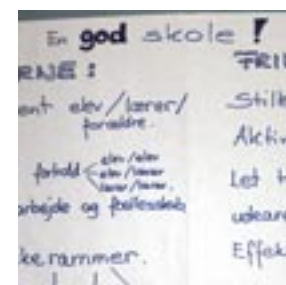 En god skole !
RNE :
ent elev/lærer/
forældre.
forhold
elev/elev
elev/lærer
lærer/lærer.
arbejde og fællesskab
ke rammer.
FRI
Stil
Aktiv
Let t
udean
Effek